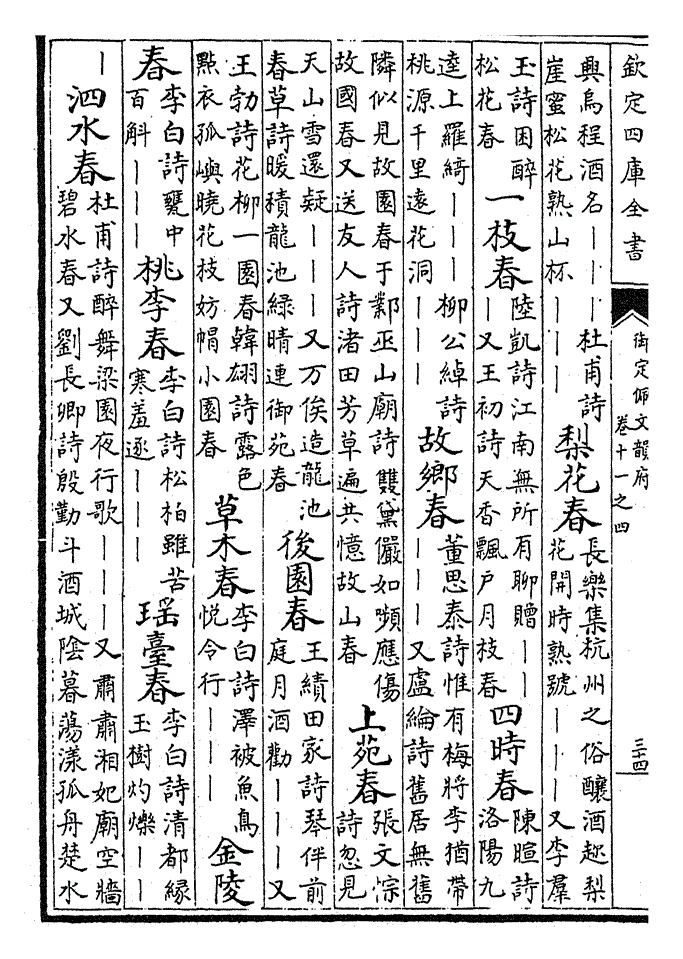 欽定四庫全書
御定佩文韻府
卷十一之四
三十四
興烏程酒名｜｜｜杜甫詩
崖蜜松花熟山杯｜｜｜
梨花春
長樂集杭州之俗釀酒趂梨
花開時熟號｜｜｜又李羣
玉詩困醉
松花春
一枝春
陸凱詩江南無所有聊贈｜｜
｜又王初詩天香飄戶月枝春
四時春
陳暄詩
洛陽九
逵上羅綺｜｜｜柳公綽詩
桃源千里遠花洞｜｜｜
故鄉春
董思泰詩惟有梅將李猶帶
｜｜｜又盧綸詩舊居無舊
隣似見故園春于鄴巫山廟詩雙黛儼如嚬應傷
故國春又送友人詩渚田芳草遍共憶故山春
上苑春
張文悰
詩忽見
天山雪還疑｜｜｜又万俟造龍池
春草詩暖積龍池緑晴連御苑春
後園春
王績田家詩琴伴前
庭月酒勸｜｜｜又
王勃詩花柳一園春韓翃詩露色
點衣孤嶼曉花枝妨帽小園春
草木春
李白詩澤被魚鳥
悅令行｜｜｜
金陵
春
李白詩甕中
百斛｜｜｜
桃李春
李白詩松柏雖苦
寒羞逐｜｜｜
瑤臺春
李白詩清都緑
玉樹灼爍｜｜
｜
泗水春
杜甫詩醉舞梁園夜行歌｜｜｜又肅肅湘妃廟空牆
碧水春又劉長卿詩殷勤斗酒城陰暮蕩漾孤舟楚水